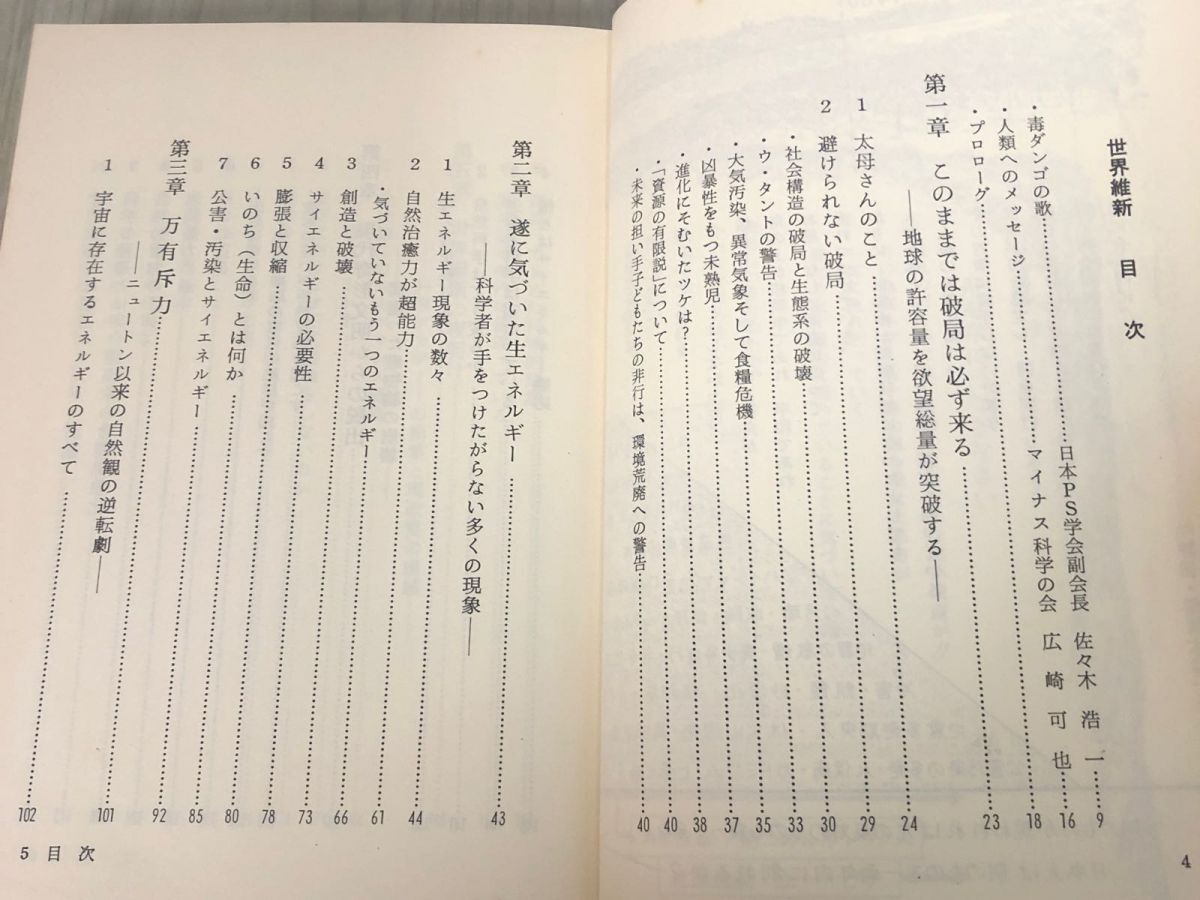 世界維新　目次
・毒ダンゴの歌……日本PS学会副会長　佐々木浩一…9
・人類へのメッセージ……マイナス科学の会　広崎可也…16
・プロローグ……18
第一章　このままでは破局は必ず来る……23
――地球の許容量を欲望総量が突破する――
1　太母さんのこと……24
2　避けられない破局……29
・社会構造の破局と生態系の破壊……30
・ウ・タントの警告……33
・大気汚染、異常気象そして食糧危機……35
・凶暴性をもつ未熟児……37
・進化にそむいたツケは?……38
・「資源の有限説」について……40
・未来の担い手子どもたちの非行は、環境荒廃への警告……40
4
第二章　遂に気づいた生エネルギー……43
――科学者が手をつけたがらない多くの現象――
1　生エネルギー現象の数々……44
2　自然治癒力が超能力……61
・気づいていないもう一つのエネルギー……66
3　創造と破壊……73
4　サイエネルギーの必要性……78
5　膨張と収縮……80
6　いのち（生命）とは何か……85
7　公害・汚染とサイエネルギー……92
第三章　万有斥力……101
――ニュートン以来の自然観の逆転劇――
1　宇宙に存在するエネルギーのすべて……102
5　目次